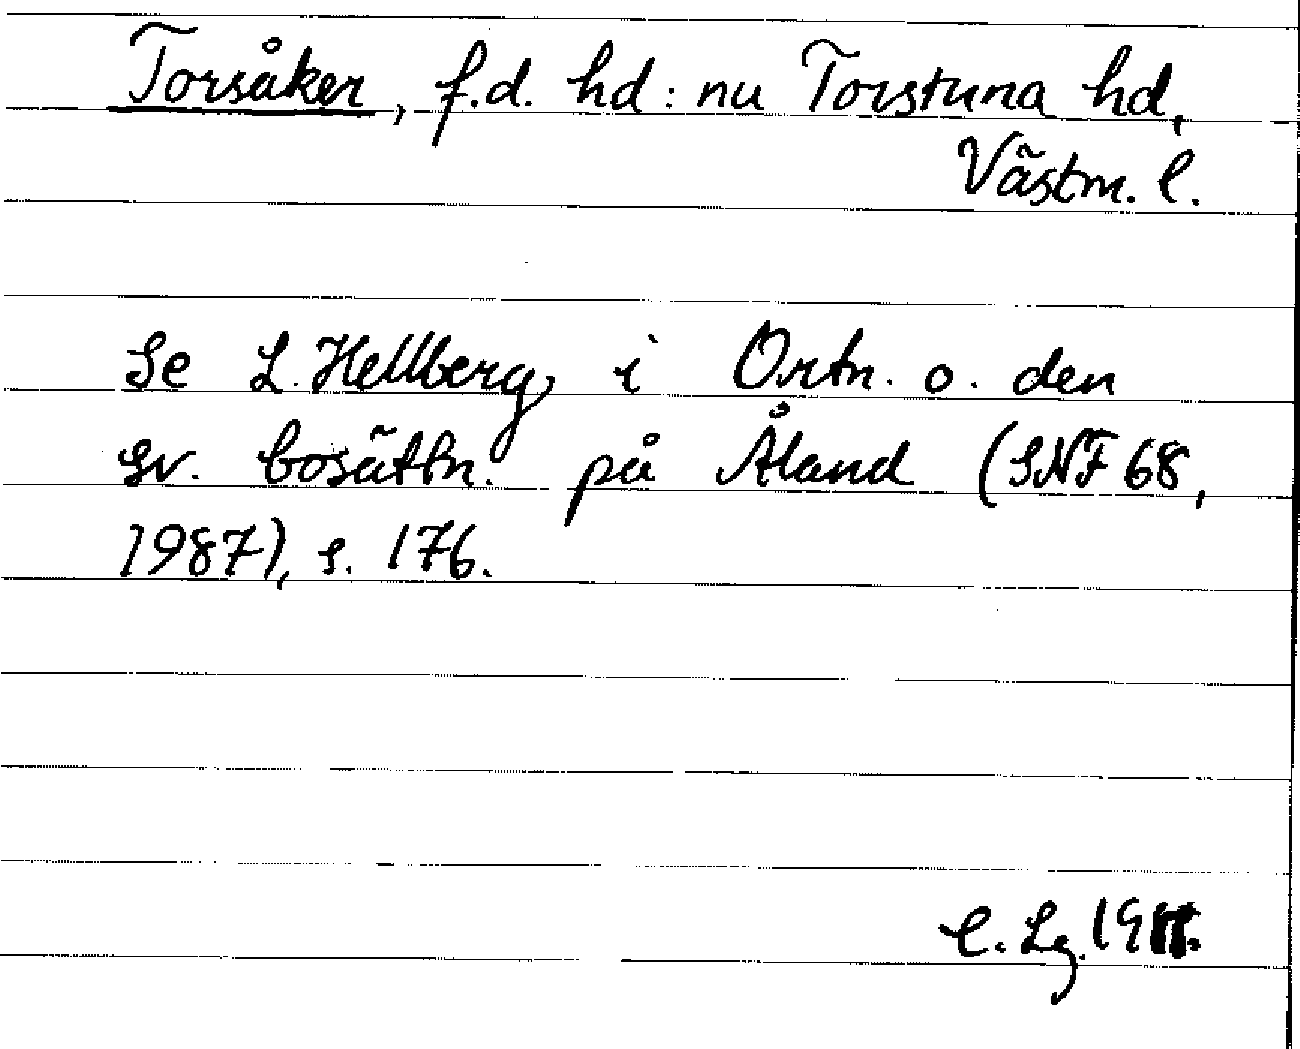 Torsåker, f.d. hd: nu Torstuna hd,
Västm. l.
Se L. Hellberg, i Ortn. o. den
sv. bosättn. på Åland (SNF 68,
1987), s. 176.
C. Lg.